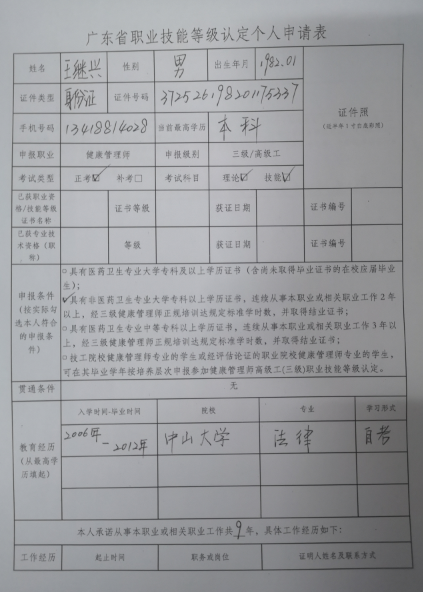 广东省职业技能等级认定个人申请表
姓名 王继兴 性别 男 出生年月 1982.01
证件类型 身份证 证件号码 372526198201175337
证件照
(近半年1寸白底彩照)
手机号码 13418814028 当前最高学历 本科
申报职业 健康管理师 申报级别 三级/高级工
考试类型 正考☑ 补考□ 考试科目 理论☑ 技能☑
已获职业资格/技能等级证书名称 证书等级 获证日期 证书编号
已获专业技术资格(职称) 等级 获证日期 证书编号
申报条件(按实际勾选本人符合的申报条件)
○具有医药卫生专业大学专科及以上学历证书(含尚未取得毕业证书的在校应届毕业生);
✓具有非医药卫生专业大学专科以上学历证书,连续从事本职业或相关职业工作2年以上,经三级健康管理师正规培训达规定标准学时数,并取得结业证书;
○具有医药卫生专业中等专科以上学历证书,连续从事本职业或相关职业工作3年以上,经三级健康管理师正规培训达规定标准学时数,并取得结业证书;
○技工院校健康管理师专业的学生或经评估论证的职业院校健康管理师专业的学生,可在其毕业学年按培养层次申报参加健康管理师高级工(三级)职业技能等级认定。
贯通条件 无
教育经历(从最高学历填起)
入学时间-毕业时间 院校 专业 学习形式
2006年-2012年 中山大学 法律 自考
本人承诺从事本职业或相关职业工作共9年,具体工作经历如下:
工作经历 起止时间 职务或岗位 证明人姓名及联系方式